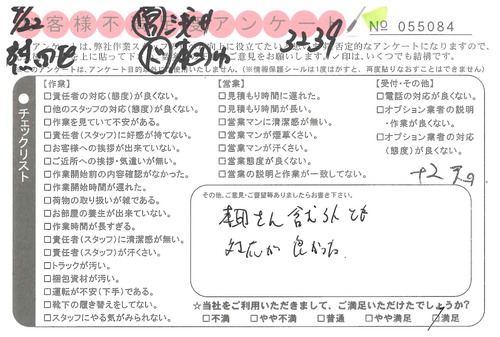 お客様不満足度アンケート № 055084
このアンケートは、弊社作業スタッフの
【作業】
□責任者の対応(態度)が良くない。
□他のスタッフの対応(態度)が良くない。
□作業を見ていて不安がある。
□責任者(スタッフ)に好感が持てない。
□お客様への挨拶が出来ていない。
□ご近所への挨拶・気遣いが無い。
□作業開始前の内容確認がなかった。
□作業開始時間が遅れた。
□荷物の取り扱いが雑である。
□お部屋の養生が出来ていない。
□作業時間が長すぎる。
□責任者(スタッフ)に清潔感が無い。
□責任者(スタッフ)が汗くさい。
□トラックが汚い。
□梱包資材が汚い。
□運転が不安(下手)である。
□靴下の履き替えをしてない。
□スタッフにやる気がみられない。
【営業】
□見積もり時間に遅れた。
□見積もり時間が長い。
□営業マンに清潔感が無い。
□営業マンが煙草くさい。
□営業マンが汗くさい。
□営業態度が良くない。
□営業の説明と作業が一致してない。
【受付・その他】
□電話の対応が良くない。
□オプション業者の説明
・作業が良くない。
□オプション業者の対応
(態度)が良くない。
チェックリスト
その他、ご意見・ご要望等ありましたらお書き下さい。
対応が良かった
☆当社をご利用いただきまして、ご満足いただけたでしょうか?
□不満 □やや不満 □普通 □やや満足 □満足